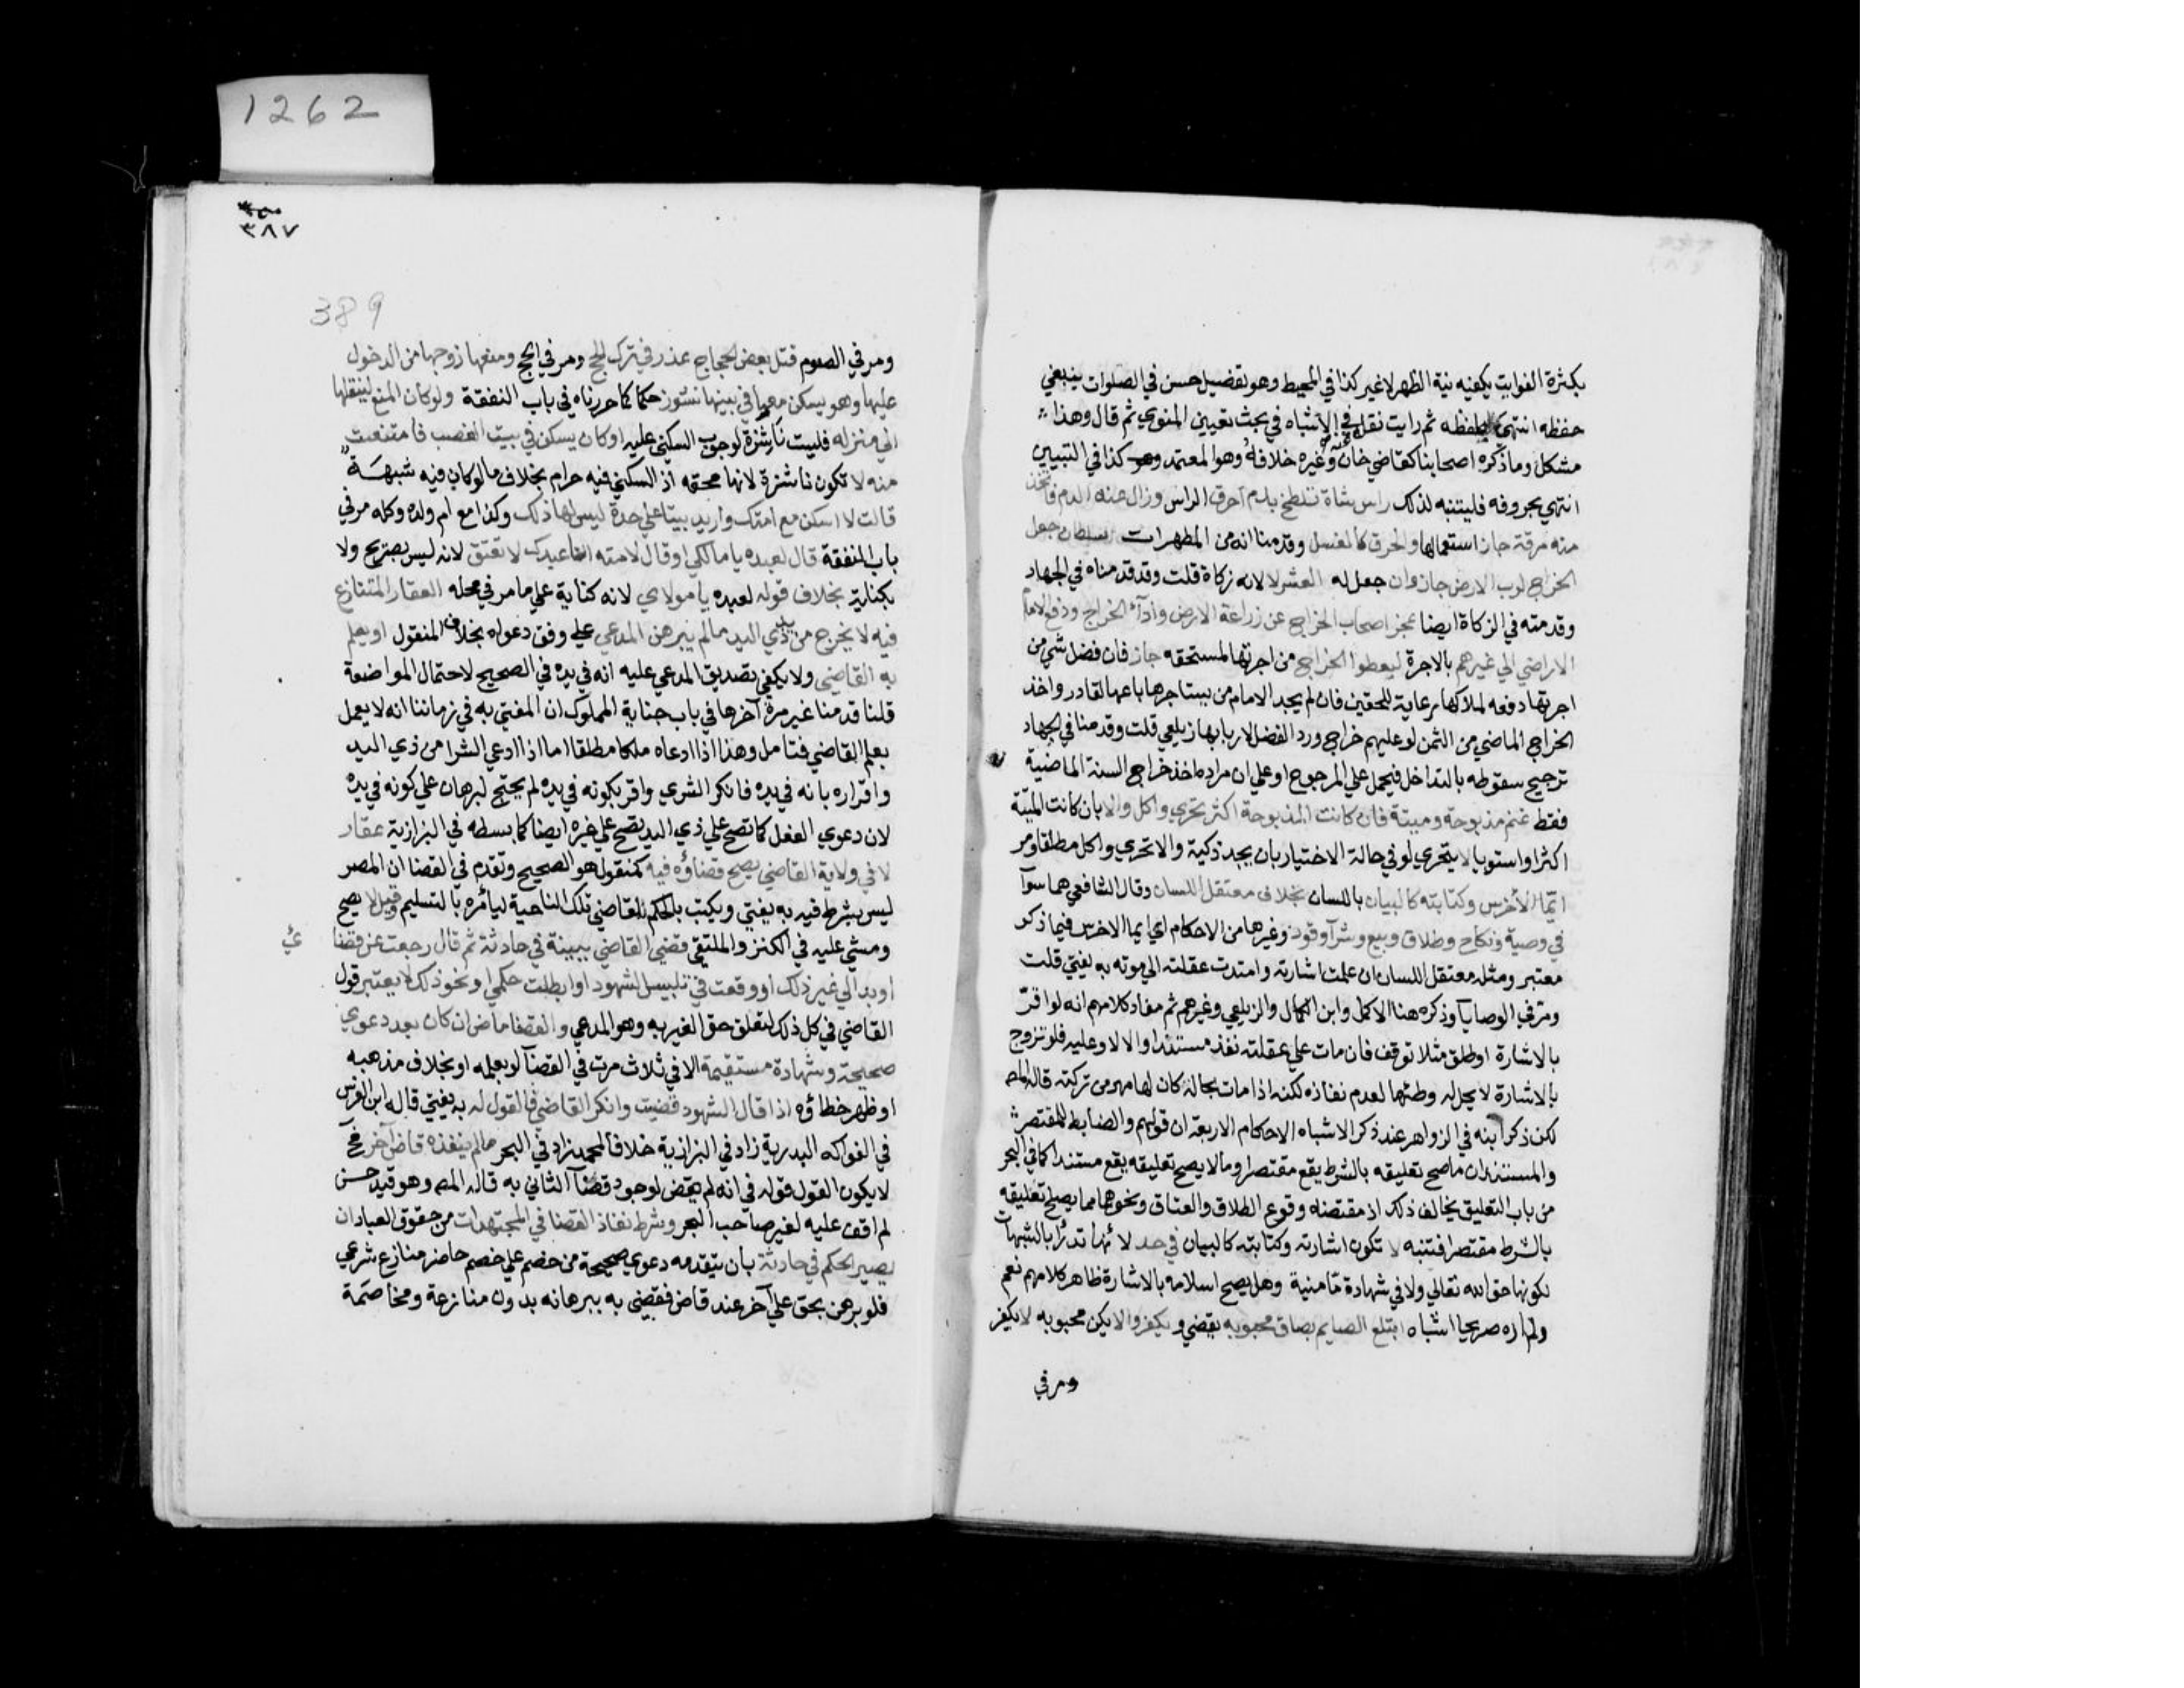 بكثرة الفوايت يكفيه نية الظهر لا غير كذا في المحيط وهو تفضيل حسن في الصلوات ينبغي
حفظه انتهى فليحفظه ثم رايت نقل في الاشباه في بحث تعيين المنوي ثم قال وهذا
مشكل وما ذكره اصحابنا كقاضي خان وغيره خلافه وهو المعتمد كذا في التبيين
انتهي بحروفه فليتنبه لذلك راس شاة تلطخ بدم احرق الراس وزال عنه الدم فاتخذ
منه مرقة جاز استعمالها والحرق كالغسل وقدمنا انه من المطهرات سلطان جعل
الخراج لرب الارض جاز وان جعل له العشر لا لانه زكاة قلت وقد قدمناه في الجهاد
وقدمته في الزكاة ايضا عجز اصحاب الخراج عن زراعة الارض وادآء الخراج ودفع الامام
الاراضي الي غيرهم بالاجرة ليعطوا الخراج من اجرتها المستحقه جاز فان فضل شي من
اجرتها دفعه لملاكها رعاية للحقين فان لم يجد الامام من يستاجرها باعها لقادر واخذ
الخراج الماضي من الثمن لو عليهم خراج ورد الفضل لاربابها زيلعي قلت وقدمنا في الجهاد
ترجيح سقوطه بالتداخل فيحمل علي المرجوح او علي ان مراده اخذ خراج السنة الماضية
فقط غنم مذبوحة وميتة فان كانت المذبوحة اكثر تحري واكل والا بان كانت الميتة
اكثر او استويا لا يتحري لو في حالة الاختيار بان يجد ذكية والا تحري واكل مطلقا ومر
ايمآ الاخرس وكتابته كالبيان باللسان بخلاف معتقل اللسان وقال الشافعي هما سوآ
في وصية ونكاح وطلاق وبيع وشرآ وقود وغيرها من الاحكام اي ايما الاخرس فيما ذكر
معتبر ومثله معتقل اللسان ان علمت اشارته وامتدت عقلته الي موته به يفتي قلت
ومر في الوصايا وذكره هنا الاكمل وابن الكمال والزيلعي وغيرهم ثم مفاد كلامهم انه لو اقر
بالاشارة او طلق مثلا توقف فان مات علي عقلته نفذ مستندا والا لا وعليه فلو تزوج
بالاشارة لا يحل له وطئها لعدم نفاذه لكنه اذا مات بحاله كان لها مهر من تركته قاله المص
لكن ذكر ابنه في الزواهر عند ذكر الاشباه الاحكام الاربعة ان قولهم والضابط للمقتصر
والمستند ان ما صح تعليقه بالشرط يقع مقتصرا وما لا يصح تعليقه يقع مستندا كما في البحر
من باب التعليق يخالف ذلك اذ مقتضاه وقوع الطلاق والعتاق ونحوهما مما يصلح تعليقه
بالشرط مقتصرا فتنبه لا تكون اشارته وكتابته كالبيان في حد لانها تدرأ بالشبهات
لكونها حق الله تعالي ولا في شهادة ما منية وهل يصح اسلامه بالاشارة ظاهر كلامهم نعم
ولم اره صريحا اشباه ابتلع الصايم بصاق محبوبه يقضي ويكفر والا يكن محبوبه لا يكفر
ومر في
1262
٣٨٧
389
ومر في الصوم قتل بعض الحجاج عذر في ترك الحج ومر في الحج ومنعها زوجها من الدخول
عليها وهو يسكن معها في بيتها نشوز حكما كما حررناه في باب النفقة ولو كان المنع لينقلها
الي منزله فليست ناشزة لوجوب السكني عليه او كان يسكن في بيت الغصب فامتنعت
منه لا تكون ناشزة لانها محقه اذ السكني فيه حرام بخلاف ما لو كان فيه شبهة
قالت لا اسكن مع امتك واريد بيتا علي حدة ليس لها ذلك وكذا مع ام ولده وكله مر في
باب النفقة قال لعبده يا مالكي او قال لامته انا عبدك لا تعتق لانه ليس بصريح ولا
بكناية بخلاف قوله لعبده يا مولاي لانه كناية علي ما مر في محله العقار المتنازع
فيه لا يخرج من يد ذي اليد ما لم يبرهن المدعي علي وفق دعواه بخلاف المنقول او يعلم
به القاضي ولا يكفي تصديق المدعي عليه انه في يده في الصحيح لاحتمال المواضعة
قلنا قدمنا غير مرة آخرها في باب جناية المملوك ان المفتي به في زماننا انه لا يعمل
بعلم القاضي فتامل وهذا اذا ادعاه ملكا مطلقا اما اذا ادعي الشرا من ذي اليد
واقراره بانه في يده فانكر الشري واقر بكونه في يده لم يحتج لبرهان علي كونه في يده
لان دعوي الفعل كما تصح علي ذي اليد تصح علي غيره ايضا كما بسطه في البزازية عقار
لا في ولاية القاضي يصح قضاؤه فيه كمنقول هو الصحيح وتقدم في القضا ان المصر
ليس بشرط فيه به يفتي ويكتب بالحكم للقاضي تلك الناحية ليامره بالتسليم وقيل لا يصح
ومشي عليه في الكنز والملتقي قضي القاضي ببينة في حادثة ثم قال رجعت عن قضائي
او بدا لي غير ذلك او وقعت في تلبيس الشهود او ابطلت حكمي او نحو ذلك لا يعتبر قول
القاضي في كل ذلك لتعلق حق الغير به وهو المدعي والقضا ماض ان كان بعد دعوي
صحيحة وشهادة مستقيمة الا في ثلاث مرت في القضآ لو بعلمه او بخلاف مذهبه
او ظهر خطاؤه اذا قال الشهود قضيت وانكر القاضي فالقول له به يفتي قاله ابن الغرس
في الفواكه البدرية زاد في البزازية خلافا لمحمد زاد في البحر ما لم ينفذه قاض آخر فح
لا يكون القول قوله في انه لم يقض لوجود قضآ الثاني به قاله المص وهو قيد حسن
لم اقف عليه لغير صاحب البحر وشرط نفاذ القضا في المجتهدات من حقوق العباد ان
يصير الحكم في حادثة بان يتقدمه دعوي صحيحة من خصم علي خصم حاضر منازع شرعي
فلو برهن بحق علي آخر عند قاض فقضي به ببرهانه بدون منازعة ومخاصمة